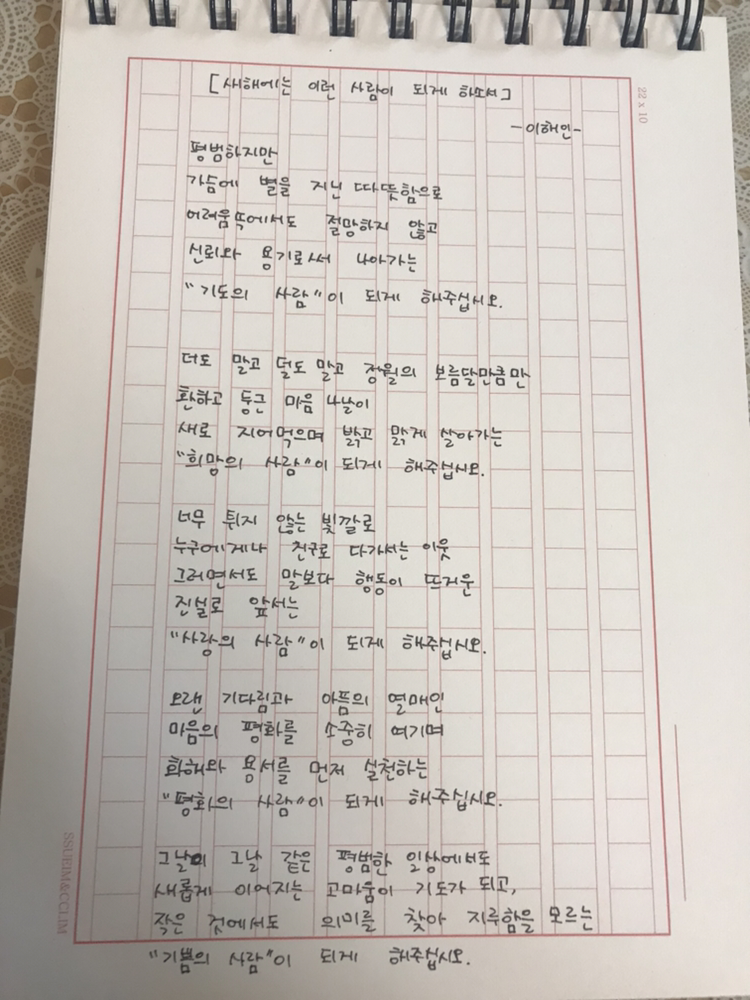 [새해에는 이런 사람이 되게 하소서]
22 x 10
-이해인-
평범하지만
가슴에 별을 지닌 따뜻함으로
어려움 뚝에서도 절망하지 않고
신뢰와 용기로써 나아가는
"기도의 사람"이 되게 해주십시오.
더도 말고 덜도 말고 정월의 보름달만큼만
환하고 둥근 마음 나날이
새로 지어먹으며 밝고 맑게 살아가는
"희망의 사람"이 되게 해주십시오.
너무 튀지 않는 빛깔로
누구에게나 친구로 다가서는 이웃
그러면서도 말보다 행동이 뜨거운
진실로 앞서는
"사랑의 사람"이 되게 해주십시오.
오랜 기다림과 아픔의 열매인
마음의 평화를 소중히 여기며
화해와 용서를 먼저 실천하는
"평화의 사람"이 되게 해주십시오.
그날이 그날 같은 평범한 일상에서도
새롭게 이어지는 고마움이 기도가 되고,
작은 것에서도 의미를 찾아 지루함을 모르는
"기쁨의 사람"이 되게 해주십시오.
SSUEIM&CCLIM